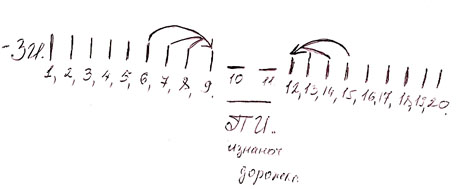 -3и.
1, 2, 3, 4, 5, 6, 7, 8, 9. 10 11 12, 13, 14, 15, 16, 17, 18, 19, 20.
ПИ.
изнаноч
дорожка